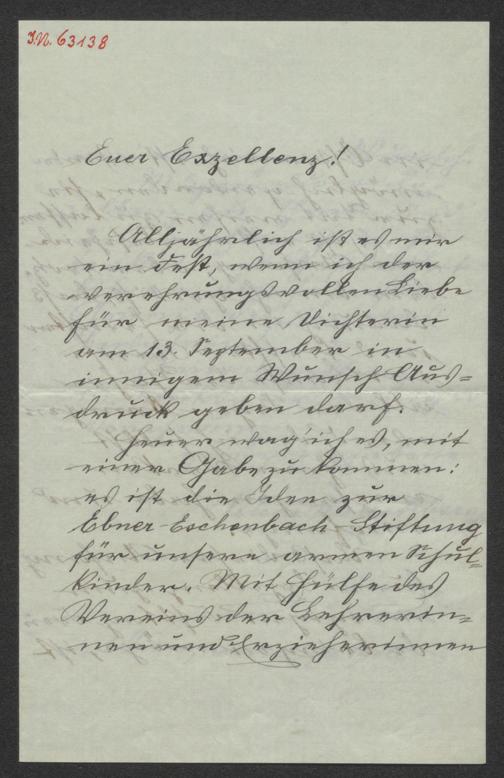 J.N. 63138
Euer Exzellenz!
Alljährlich ist es mir
ein Fest, wenn ich der
verehrungsvollen Liebe
für meine Dichterin
am 13. September in
innigem Wunsch Aus=
druck geben darf.
Heuer wag' ich es, mit
einer Gabe zu kommen:
es ist die Idee zur
Ebner-Eschenbach-Stiftung
für unsere armen Schul=
kinder. Mit Hülfe des
Vereins der Lehrerin=
nen und Erzieherinnen